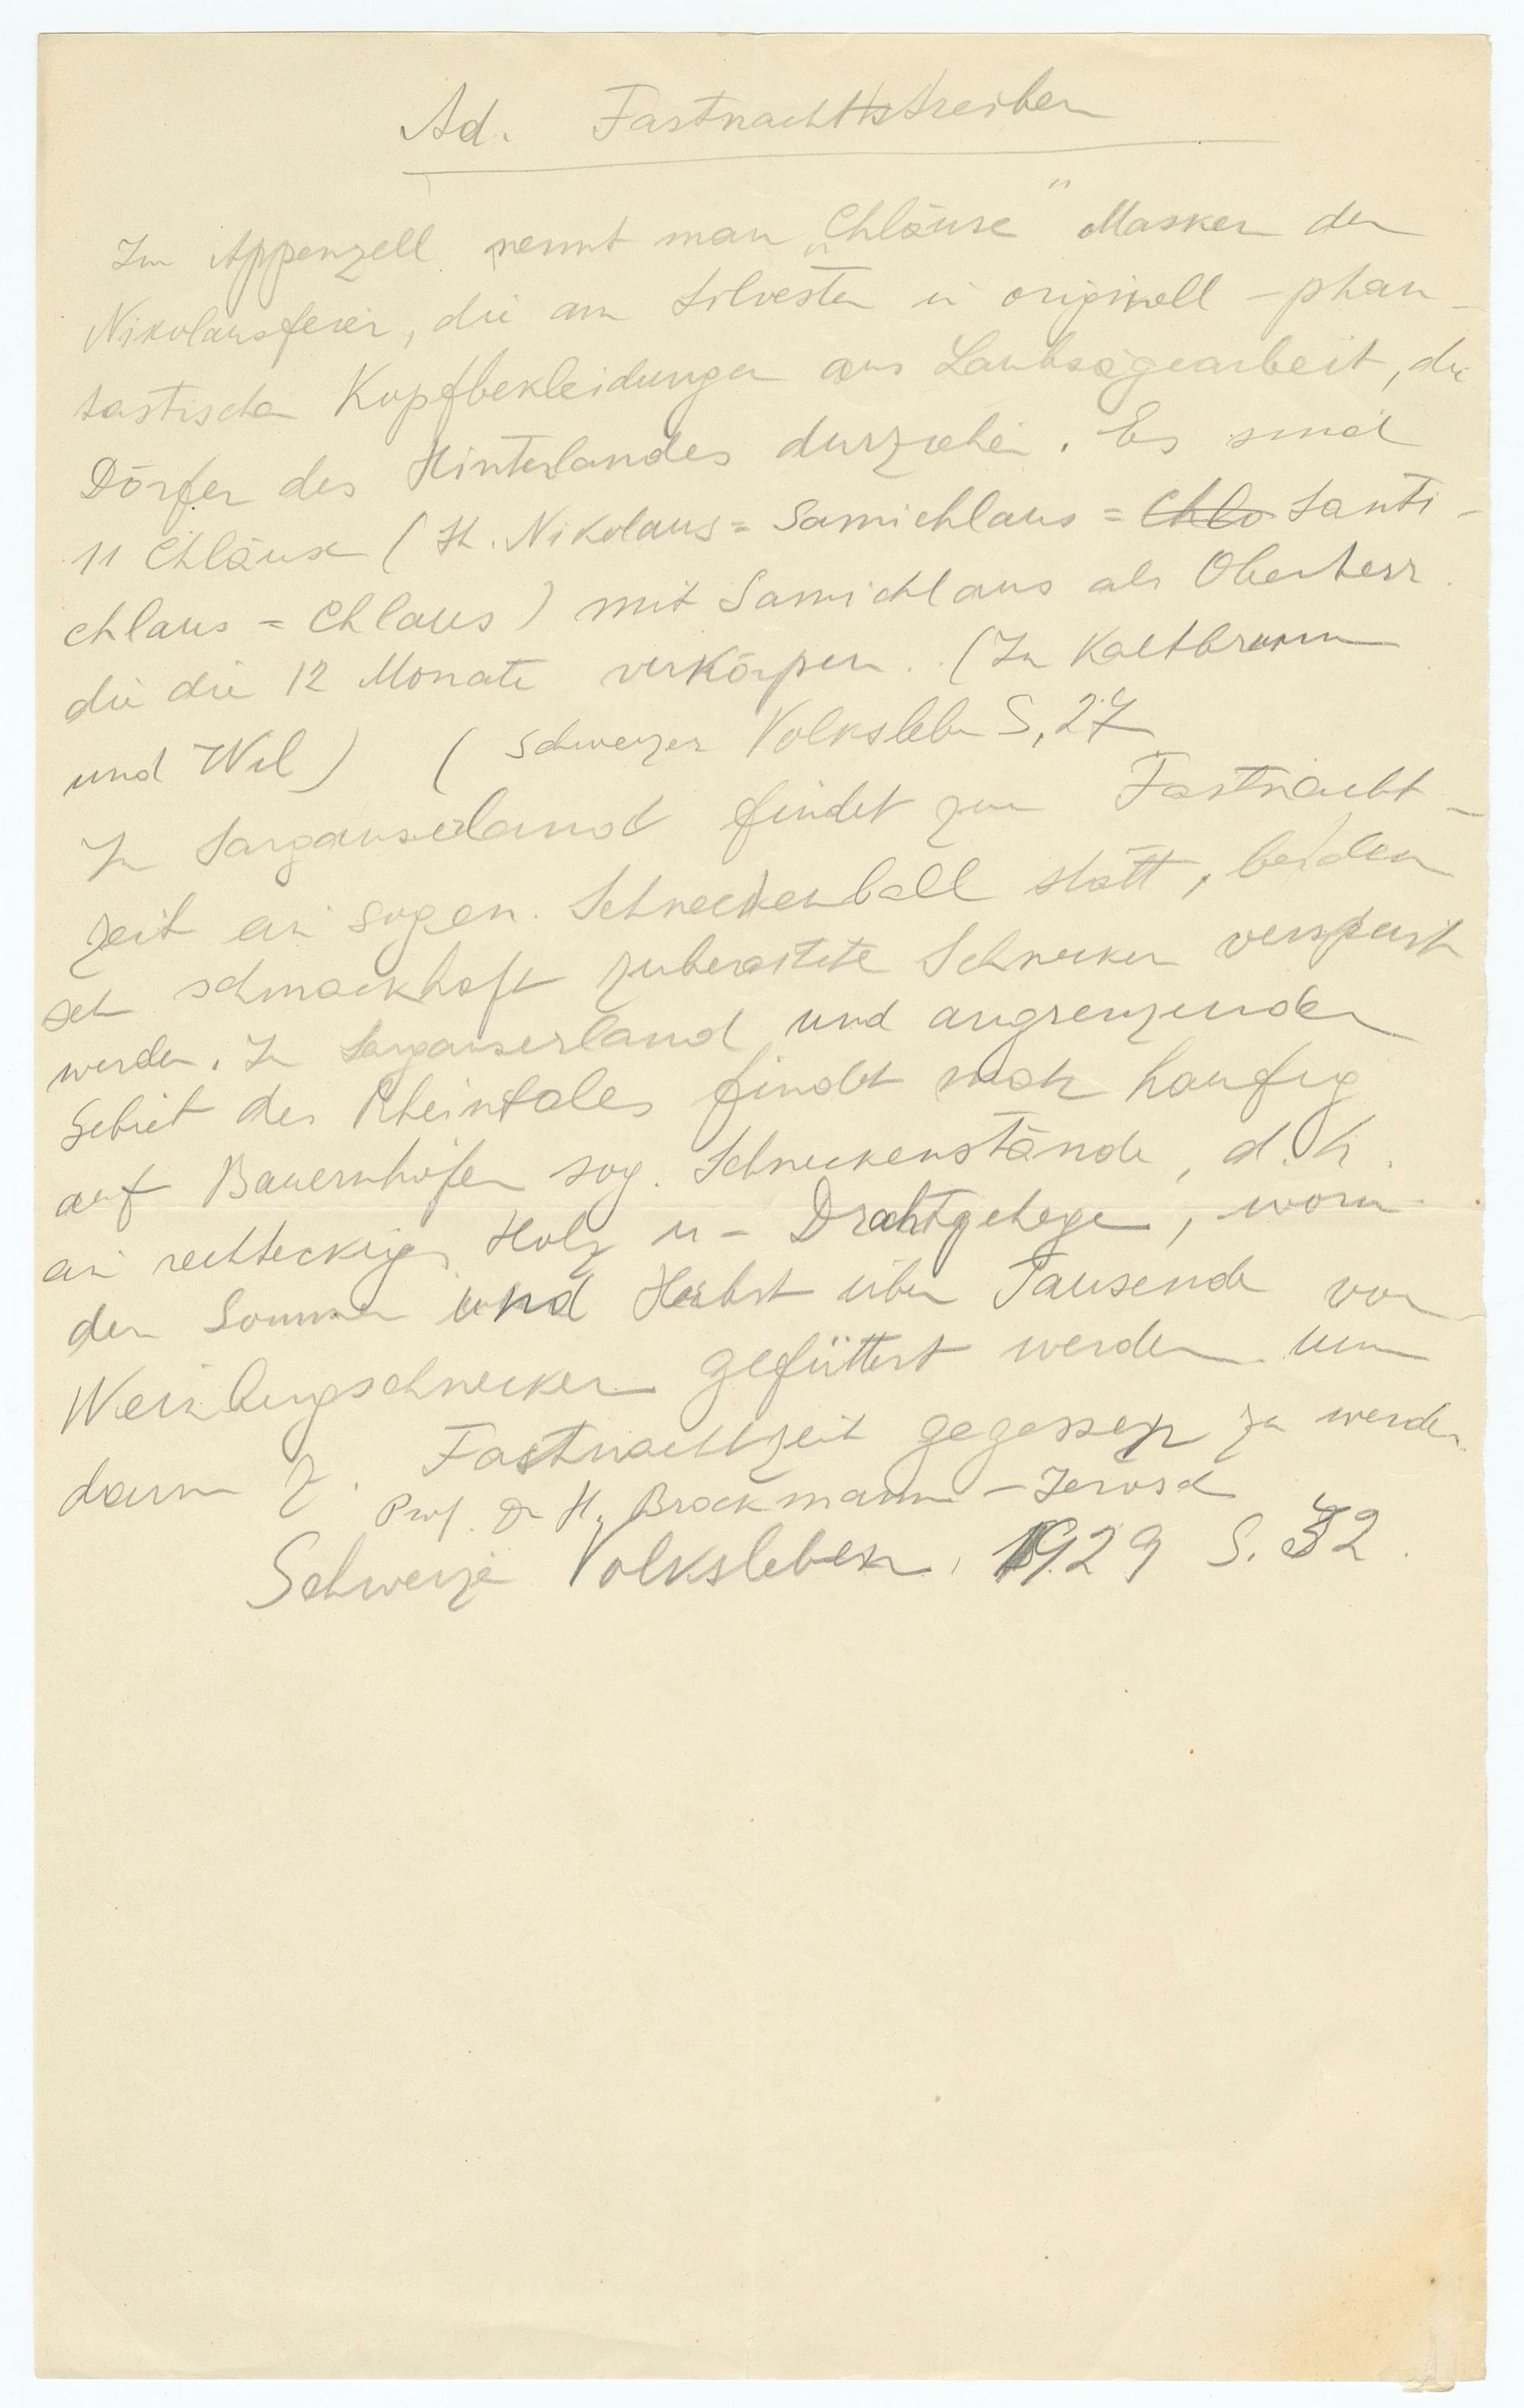 Ad. Fastnachtstreiben
Im Appenzell nennt man „Chläuse" Masken der
Nikolausfeier, die am Silvester in originell-phan-
tastischen Kopfbekleidungen aus Laubsägearbeit, die
Dörfer des Hinterlandes durziehen. Es sind
11 Chläuse (St. Nikolaus = Samichlaus = Chlo Santi-
chlaus = Chlaus) mit Samichlaus als Oberherr
die die 12 Monate verkörpern. (In Kaltbrunn
und Wil) (Schweizer Volksleben S, 27
In Sarganserland findet zur Fastnacht-
zeit ein sogen. Schneckenball statt, bei den
schmackhaft zubereitete Schnecken verspeist
werden. In Sarganserland und angrenzenden
Gebiet des Rheintales findet man haufig
auf Bauernhöfen sog. Schneckenstände, d. h.
ein rechteckiges Holz u- Drahtgehege, worin
den Sommer und Herbst über Tausende von
Weinbergschnecken gefüttert werden um
dann z. Fastnachtzeit gegessen zu werden.
Prof. Dr H. Brockmann-Jerosch
Schweizer Volksleben, 1929 S. 32.